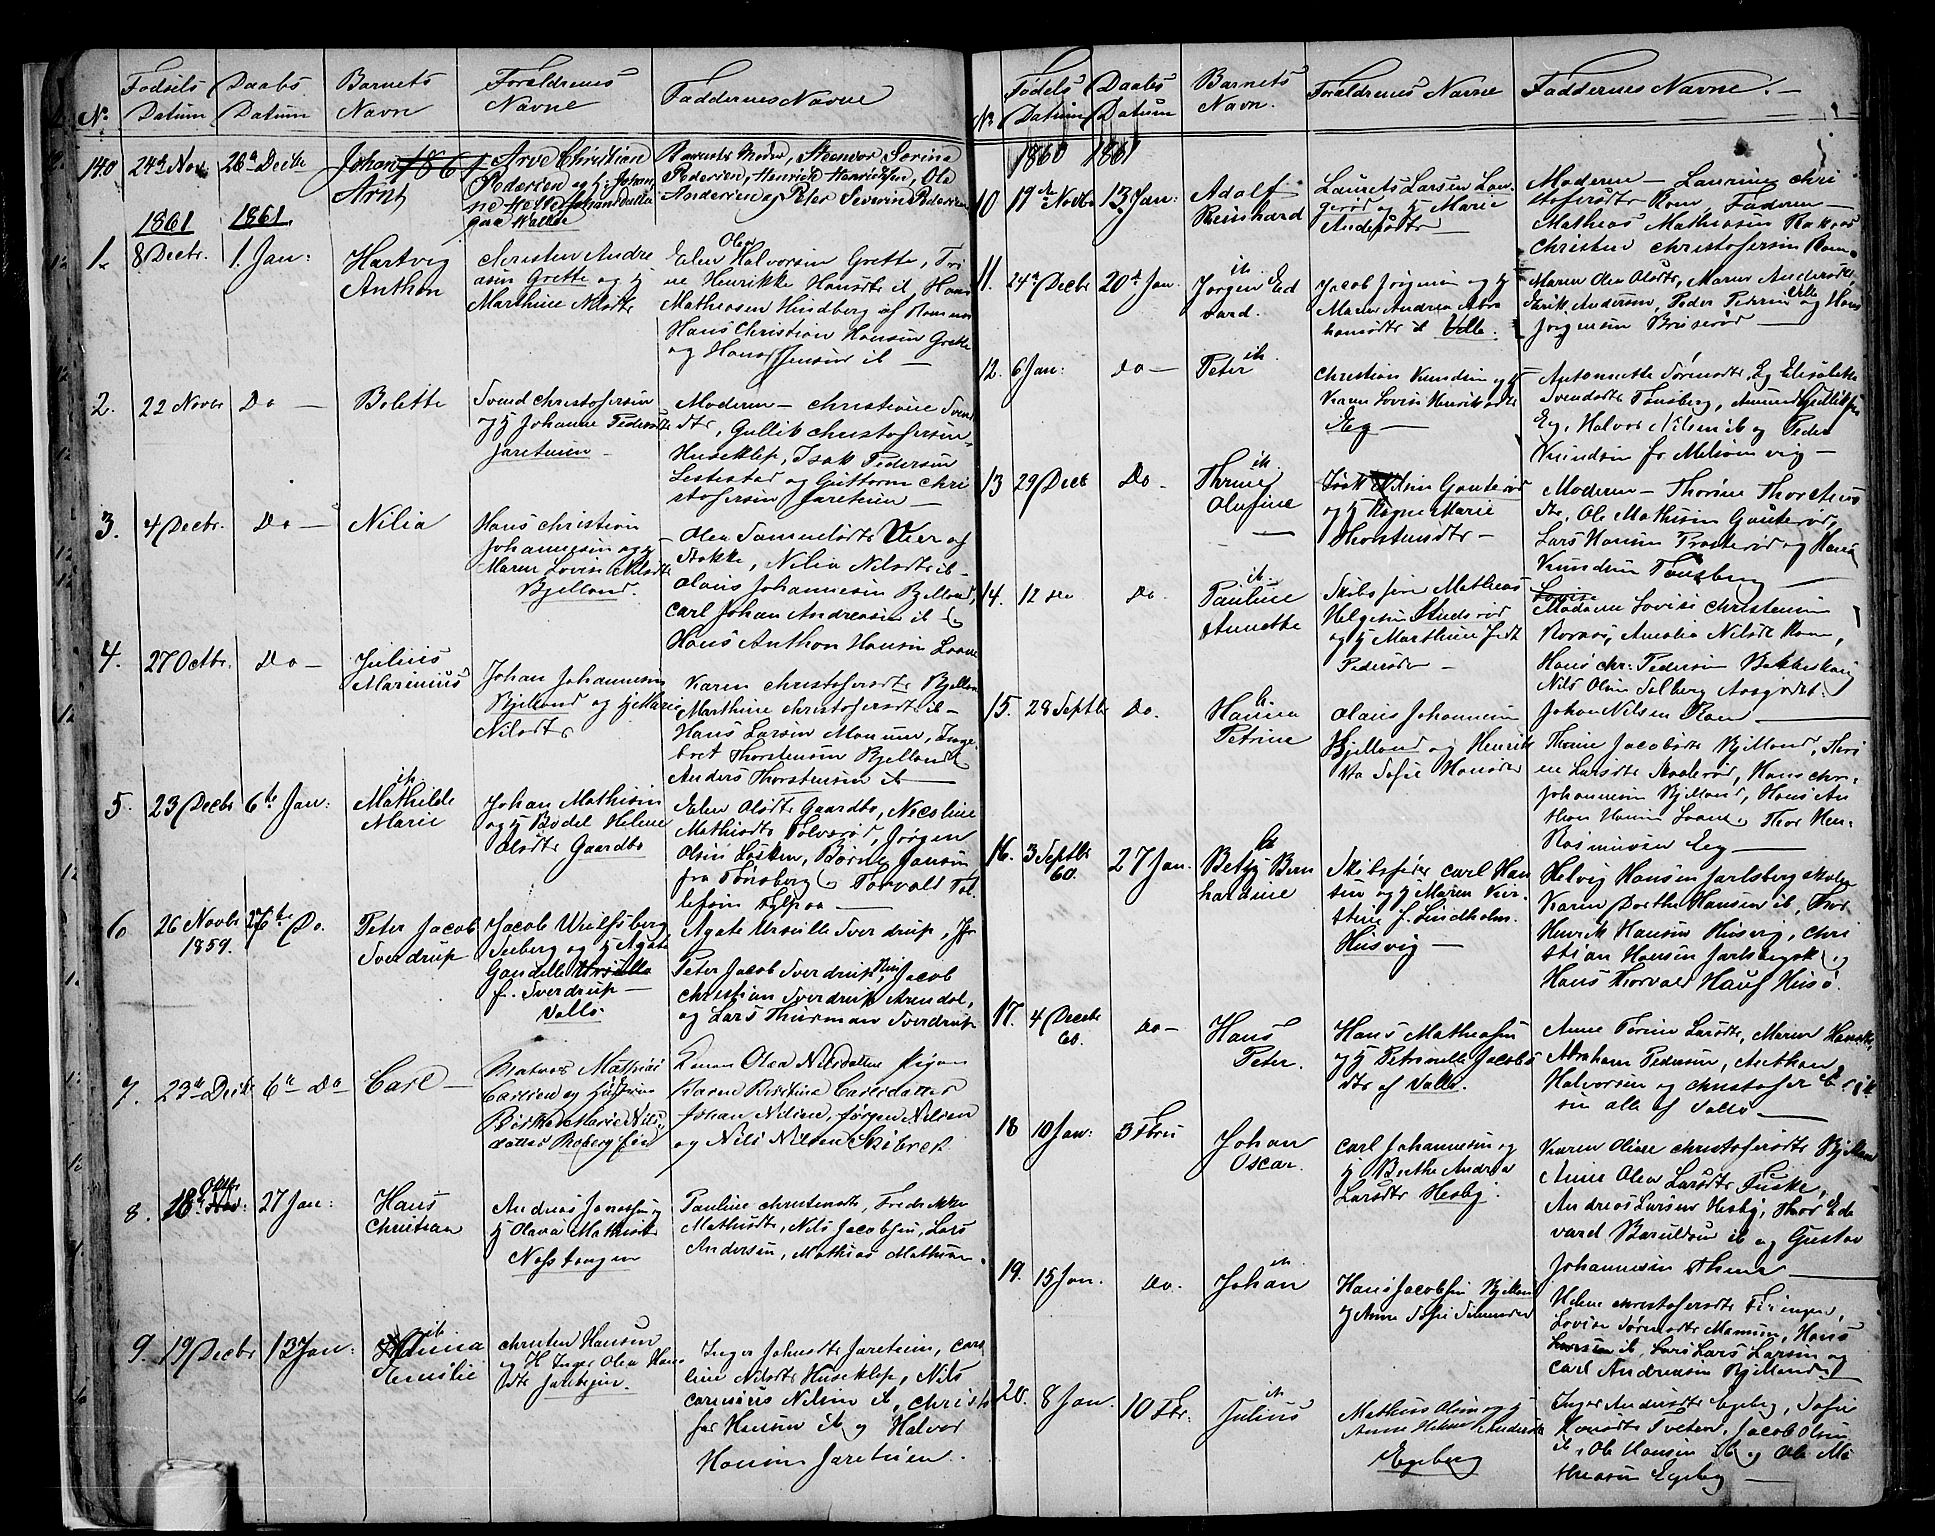 No Fødsels Datum Daabs Datum Barnets Navn Forældrenes Navne Faddernes Navne
140 24de Nov 26de Decbr Johan Arnt
Arve Christian
Pedersen og H. Johan
ne Mette
paa Valløe
Barnets Moder, Steenvor Serine
Pedersen, Henrik Henriksen, Ole
Andersen og Peter Severin Pedersen
1861 1861
1. 8 Decbr. 1. Jan: Hartvig
Anthon
Christen Andre
asen Grette og H
Marthine Nilsdtr
Elen Olea Halvorsen Grette, Tri
ne Henrikke Hansdtr ib, Hans
Mathiasen Hindberg af Ramnes
Hans Christian Hansen Grette
og Hans Jensen ib —
2. 22 Novbr Do — Bolette
Svend Christofersen
og H Johanne Pedersdtr
Jareteien
Moderen — Christiane Svends
dtr, Gullik Christofersen
Huseklep, Isak Pedersen
Lestestad og Guttorm Chri
stofersen Jareteien —
3. 4 Decbr. Do — Nilia
Hans Christian
Johannesen og H
Maren Lovise Nilsdtr
Bjelland.
Olea Samuelsdtr Veer af
Stokke, Nilia Nilsdtr ib —
Olaus Johannesen Bjelland,
Carl Johan Andreasen ib og
Hans Anthon Hansen Loane
4. 27 Octbr. Do — Julius
Marinius
Johan Johannesen
Bjelland og H Marie
Nilsdtr
Karen Christofersdtr Bjelland
Marthine Christofersdt ib —
Hans Larsen Mamuen, Inge
bret Thorstensen Bjelland
Anders Thorstensen ib —
5. 23 Decbr 6te Jan: ih Mathilde
Marie
Johan Mathisen
og H Bodel Helene
Olsdtr Gaardbo
Elen Olsdtr Gaardbo, Nicoline
Mathisdtr Tolvsrød, Jørgen
Olsen Løsken, Børre Jansen
fra Tønsberg og Torvald Tol
lefsen
6 26 Novbr
1859. 6te Do. Peter Jacob
Sverdrup
Jacob Wulfsberg
Seeberg og H Agate
Gondelle Ursulla
f. Sverdrup —
Vallø.
Agate Ursulle Sverdrup, Fr
Peter Jacob Sverdrup, Jacob
Christian Sverdrup Arendal,
og Lars Thurman Sverdrup
7. 23de Decbr 6te Do Carl —
Matros Mathias
Carlsen og Hustru
Marie Nils
datter
Olea Nilsdatter Pigen
Karen Kirstine Carlsdatter
Johan Nilsen, Jørgen Nilsen
og Nils Nilsen
8. 18de Octbr 27 Jan: Hans
Christian
Andreas Jonassen og
H Olava Mathisdtr
Nøsstangen
Pauline Christensdtr, Fredrikke
Mathisdtr, Nils Jacobsen, Lars
Andersen, Mathias Mathisen.
9. 19 Decbr 13 Jan: ib. Hanna
Emilie
Christen Hansen
og H. Inger Olea Hans
dtr Jareteien.
Inger Johnsdtr Jareteien, Caro
line Nilsdtr Huseklep, Nils
Carenius Nilsen ib, Christo
fer Hansen ib og Halvor
Hansen Jareteien.
No Fødsels Datum Daabs Datum Barnets Navn. Forældrenes Navne Faddernes Navne. —
1860 1861
10 19de Novbr 13 Jan: Adolf
Reinhard
Laurets Larsen Lan
gerød og H Marie
Andersdtr
Moderen — Laurine Chri
stofersdtr Rom, Faderen —
Mathias Mathiasen Rakaas
Christen Christofersen Rom.
11. 24de Decbr 20de Jan. ih Jørgen Ed
vard.
Jacob Jørgensen og H
Maren Andrea Abra
hamsdtr af Valle.
Maren Olea Olsdtr, Maren Andersdtr,
Erik Andersen, Peder Pedersen Valle og Hans
Jørgensen Bruserød —
12. 6 Jan: Do — ih Peter
Christian Knudsen og H
Karen Lovise Henriksdtr
Eeg —
Antonette Sørensdtr, Eg Elisabeth
Svendsdtr Tønsberg, Anund Gulliksen
Eg, Halvor Nilsen ib og Peder
Knudsen fr Melsomvig —
13 29 Decbr Do — ih Thrine
Olufine
Isak Nilsen Gauterød
og H Ragne Marie
Thorstensdtr —
Moderen — Thorine Thorstens
dtr, Ole Mathisen Gauterød,
Lars Hansen Presterød og Hans
Knudsen Tønsberg —
14. 12 Do Do. ih Pauline
Annette
Skibsfører Mathias
Helgesen
og H Marthine
Pedersdtr —
Madame Lovise Christensen
Amalia Nilsdtr Rom,
Hans Chr: Pedersen Bakkeskaug
Nils Olsen Selberg Aasgrdst.
Johan Nilsen Rom —
15. 28 Septbr Do. Hanna
Petrine
Olaus Johannesen
Bjelland og Henrik
ka Sofie Hansdtr
Thrine Jacobsdtr Bjelland, Thri
ne Larsdtr Skaderød, Hans Chr.
Johannesen Bjelland, Hans An
thon Hansen Loane, Thor Hen.
Rasmussen Eeg —
16. 3 Septbr
60. 27 Jan. Betzy Bern
hardine
Skibsfører Carl Han
sen og H Maren Kir
stine f. Lindholm.
Husvig —
Helvig Hansen Jarlsberg
Karen Dorthe Hansen ib, Thor
Henrik Hansen Husvig, Chri
stian Hansen Jarlsberg og
Hans Thorvald Hauf Husø.
17. 4 Decbr
60. Do — Hans
Peter.
Hans Mathiassen
og H Petronelle Jacobs
dtr af Vallø.
Anne Torine Larsdtr, Maren Hansdtr,
Abraham Pedersen, Anthon
Halvorsen og Christofer Erik
sen alle af Vallø —
18 10 Jan: 3 Fbru Johan
Oscar.
Carl Johannesen og
H Berthe Andrea
Larsdtr Hesby.
Karen Oline Christofersdtr Bjelland
Anne Olea Larsdtr Fuske,
Andreas Larsen Hesby, Thor Ed
vard Baruldsen ib og Gustav
Johannesen Thine —
19. 15 Jan. Do. ih Johan
Hans Jacobsen Bjelland
H Anne Sofie Simensdtr
Helene Christofersdtr Feiringen,
Lovise Sørensdtr Mamuen, Hans
Larsen ib, Lars Larsen og
Carl Andreasen Bjelland
20. 8 Jan. 10 Fbr. ih Julius
Mathias Olsen og H
Anne Helene Andersdtr
Egeberg
Inger Andersdtr Egebg, Sofie
Hansdtr Tveten, Jacob Olsen
ib, Ole Hansen ib og Ole Ma
thiasen Egebg —